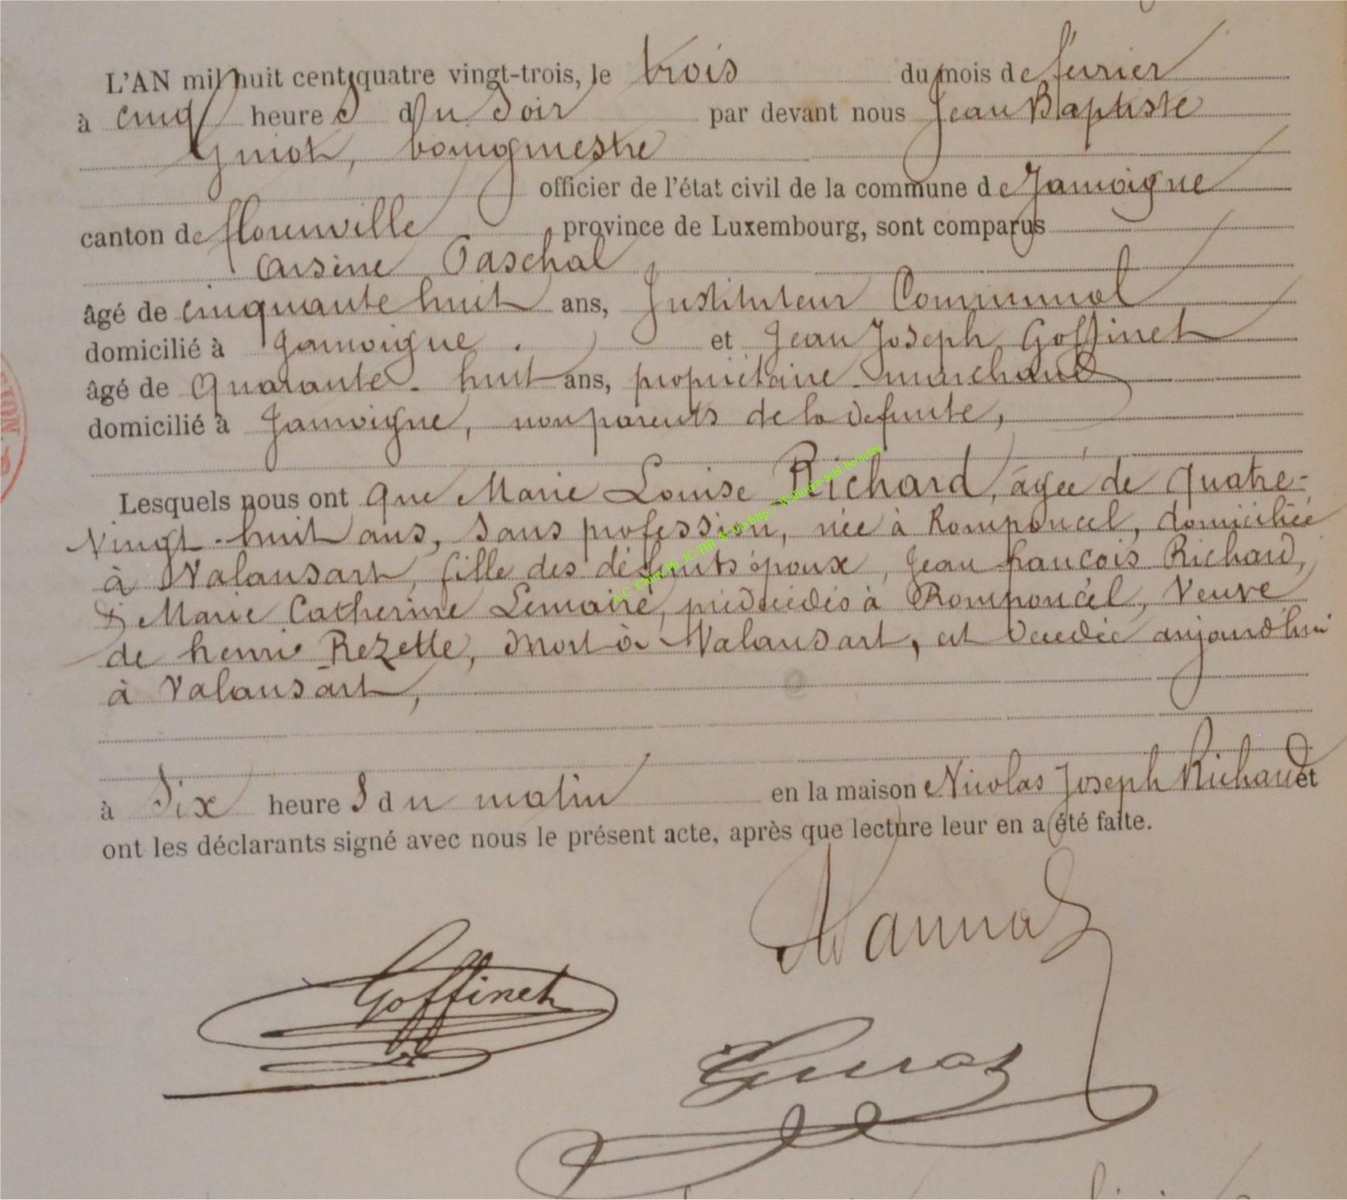 L'AN mil huit cent quatre vingt-trois, le trois du mois de février
à cinq heures du soir par devant nous Jean Baptiste
Guiot, bourgmestre
officier de l'état civil de la commune de Jamoigne
canton de florenville province de Luxembourg, sont comparus
Arsène Paschal
âgé de cinquante huit ans, Instituteur Communal
domicilié à Jamoigne. et Jean Joseph Goffinet
âgé de Quarante-huit ans, propriétaire marchand
domicilié à Jamoigne, non parents de la défunte,
Lesquels nous ont que Marie Louise Richard, âgée de quatre-
vingt-huit ans, sans profession, née à Romponcel, domiciliée
à Valansart, fille des défunts époux, Jean françois Richard,
& Marie Catherine Lemaire, prédécédés à Romponcél, Veuve
de henri Rezette, mort à Valansart, est décédée aujourd'hui
à Valansart,
à six heures du matin en la maison Nicolas Joseph Richard et
ont les déclarants signé avec nous le présent acte, après que lecture leur en a été faite.
Goffinet